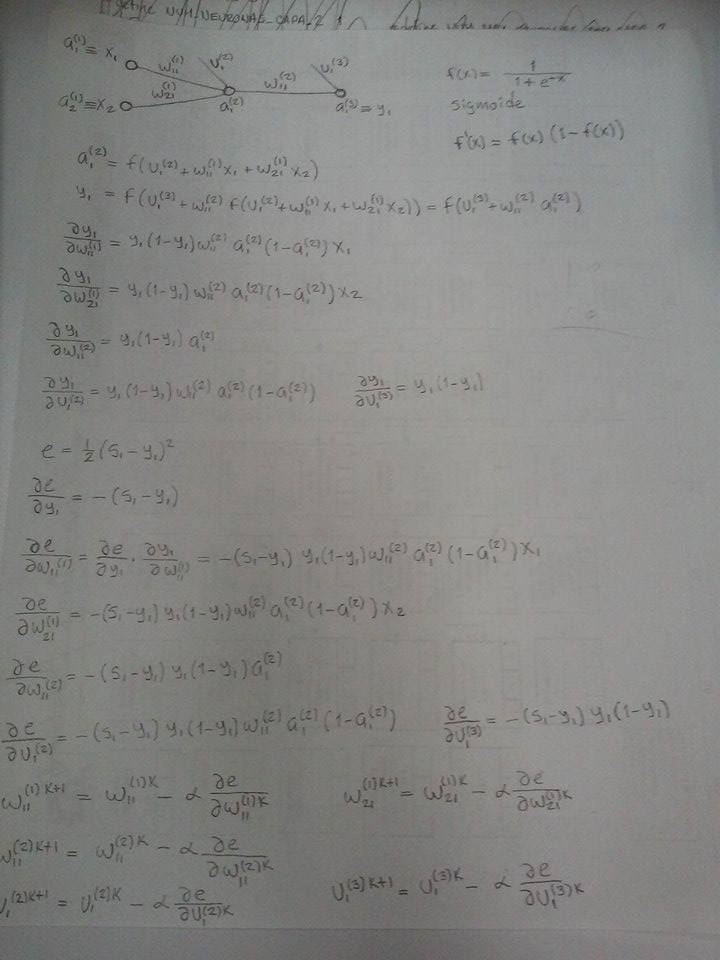 a₁⁽¹⁾ ≡ x₁ w₁₁⁽¹⁾ U₁⁽²⁾ w₁₁⁽²⁾ U₁⁽³⁾ f(x) = 1 / (1 + e⁻ˣ)
a₂⁽¹⁾ ≡ x₂ w₂₁⁽¹⁾ a₁⁽²⁾ a₁⁽³⁾ = y₁ sigmoide
f'(x) = f(x) (1 - f(x))
a₁⁽²⁾ = f(U₁⁽²⁾ + w₁₁⁽¹⁾ x₁ + w₂₁⁽¹⁾ x₂)
y₁ = f(U₁⁽³⁾ + w₁₁⁽²⁾ f(U₁⁽²⁾ + w₁₁⁽¹⁾ x₁ + w₂₁⁽¹⁾ x₂)) = f(U₁⁽³⁾ + w₁₁⁽²⁾ a₁⁽²⁾)
∂y₁/∂w₁₁⁽¹⁾ = y₁(1-y₁) w₁₁⁽²⁾ a₁⁽²⁾ (1-a₁⁽²⁾) x₁
∂y₁/∂w₂₁⁽¹⁾ = y₁(1-y₁) w₁₁⁽²⁾ a₁⁽²⁾ (1-a₁⁽²⁾) x₂
∂y₁/∂w₁₁⁽²⁾ = y₁(1-y₁) a₁⁽²⁾
∂y₁/∂U₁⁽²⁾ = y₁(1-y₁) w₁₁⁽²⁾ a₁⁽²⁾ (1-a₁⁽²⁾) ∂y₁/∂U₁⁽³⁾ = y₁(1-y₁)
e = ½ (S₁ - y₁)²
∂e/∂y₁ = -(S₁ - y₁)
∂e/∂w₁₁⁽¹⁾ = ∂e/∂y₁ · ∂y₁/∂w₁₁⁽¹⁾ = -(S₁-y₁) y₁(1-y₁) w₁₁⁽²⁾ a₁⁽²⁾ (1-a₁⁽²⁾) x₁
∂e/∂w₂₁⁽¹⁾ = -(S₁-y₁) y₁(1-y₁) w₁₁⁽²⁾ a₁⁽²⁾ (1-a₁⁽²⁾) x₂
∂e/∂w₁₁⁽²⁾ = -(S₁-y₁) y₁(1-y₁) a₁⁽²⁾
∂e/∂U₁⁽²⁾ = -(S₁-y₁) y₁(1-y₁) w₁₁⁽²⁾ a₁⁽²⁾ (1-a₁⁽²⁾) ∂e/∂U₁⁽³⁾ = -(S₁-y₁) y₁(1-y₁)
w₁₁⁽¹⁾ᴷ⁺¹ = w₁₁⁽¹⁾ᴷ - α ∂e/∂w₁₁⁽¹⁾ᴷ w₂₁⁽¹⁾ᴷ⁺¹ = w₂₁⁽¹⁾ᴷ - α ∂e/∂w₂₁⁽¹⁾ᴷ
w₁₁⁽²⁾ᴷ⁺¹ = w₁₁⁽²⁾ᴷ - α ∂e/∂w₁₁⁽²⁾ᴷ
U₁⁽²⁾ᴷ⁺¹ = U₁⁽²⁾ᴷ - α ∂e/∂U₁⁽²⁾ᴷ U₁⁽³⁾ᴷ⁺¹ = U₁⁽³⁾ᴷ - α ∂e/∂U₁⁽³⁾ᴷ